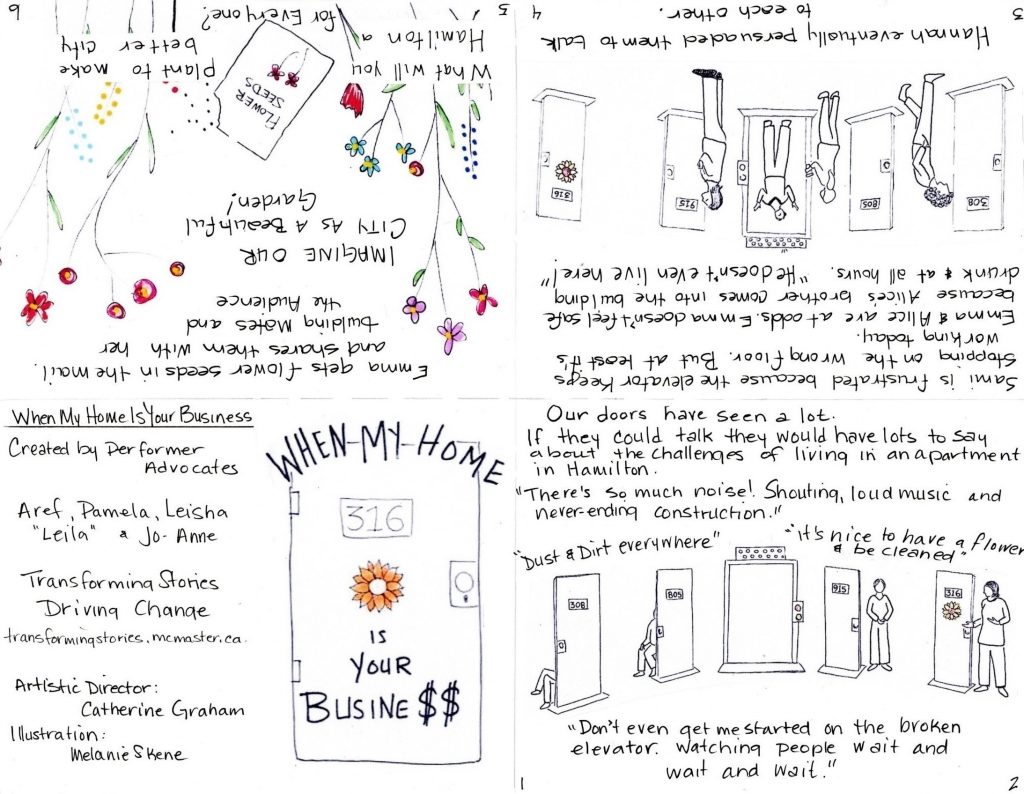 When My Home Is Your Business
Created by Performer
Advocates
Aref, Pamela, Leisha
"Leila" & Jo-Anne
Transforming Stories
Driving Change
transformingstories.mcmaster.ca.
Artistic Director:
Catherine Graham
Illustration:
Melanie Skene
WHEN-MY-HOME
316
IS
YOUR
BUSINE$$
Our doors have seen a lot.
If they could talk they would have lots to say
about the challenges of living in an apartment
in Hamilton.
"There's so much noise! Shouting, loud music and
never-ending construction."
"Dust & Dirt everywhere"
"it's nice to have a flower
& be cleaned"
308
805
915
316
"Don't even get me started on the broken
elevator. Watching people wait and
wait and wait."
1
2
Sami is frustrated because the elevator keeps
stopping on the wrong floor. But at least it's
working today.
Emma & Alice are at odds. Emma doesn't feel safe
because Alice's brother comes into the building
drunk & at all hours. "He doesn't even live here!"
308
805
915
316
Hannah eventually persuaded them to talk
to each other.
3
4
Emma gets flower seeds in the mail.
and shares them with her
building mates and
the Audience
IMAGINE OUR
CITY AS A Beautiful
Garden!
FLOWER
SEEDS
What will you plant to make
Hamilton a better city
for Everyone?
5
6